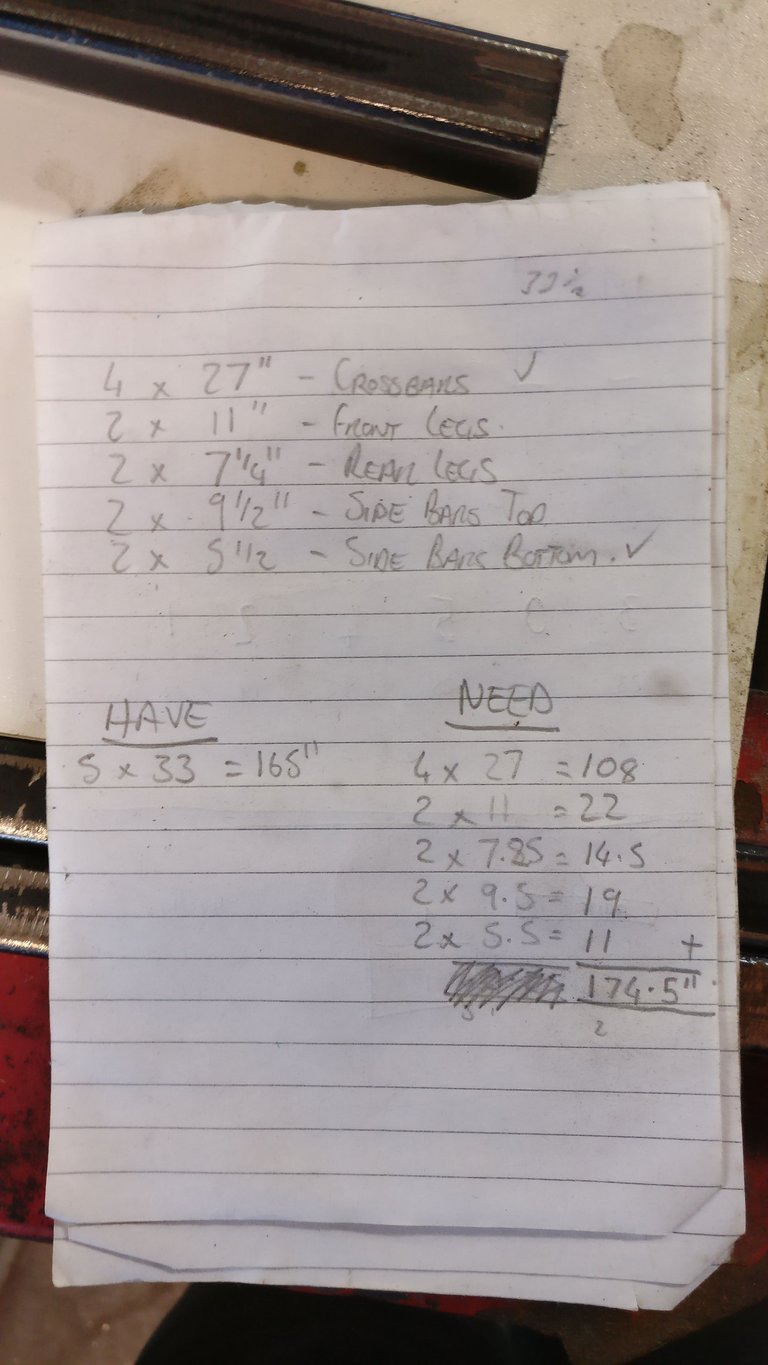 4 x 27" - CROSSBARS ✓
2 x 11" - FRONT LEGS.
2 x 7 1/4" - REAR LEGS
2 x 9 1/2" - SIDE BARS TOP
2 x 5 1/2 - SIDE BARS BOTTOM. ✓
HAVE
5 x 33 = 165"
NEED
4 x 27 = 108
2 x 11 = 22
2 x 7.25 = 14.5
2 x 9.5 = 19
2 x 5.5 = 11 +
174.5"
2